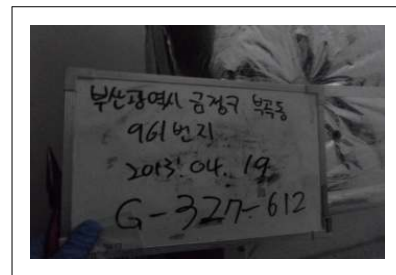 부산광역시 금정구 부곡동
961번지
2013. 04. 19
G-327-612